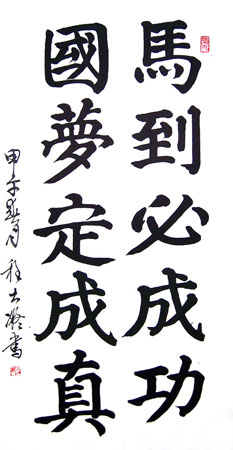 馬到必成功
國夢定成真
甲午
月
書